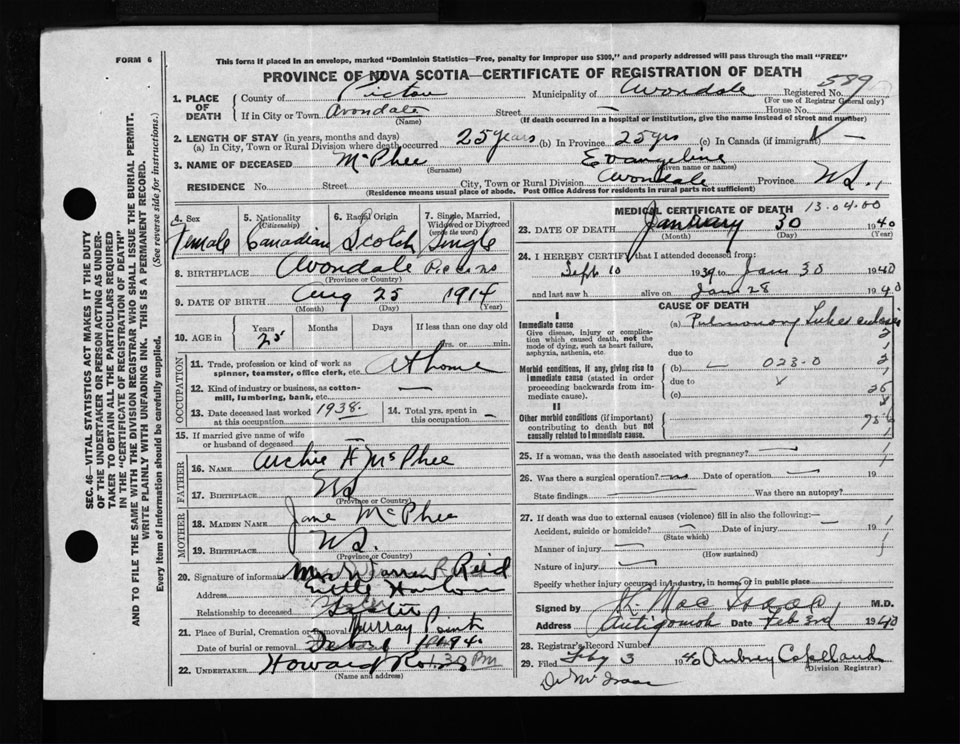 FORM 6
This form if placed in an envelope, marked "Dominion Statistics—Free, penalty for improper use $300," and properly addressed will pass through the mail "FREE"
PROVINCE OF NOVA SCOTIA—CERTIFICATE OF REGISTRATION OF DEATH
589
1. PLACE OF DEATH
County of Pictou Municipality of Avondale Registered No.
(For use of Registrar General only)
If in City or Town Avondale Street — House No.
(Name) (If death occurred in a hospital or institution, give the name instead of street and number)
2. LENGTH OF STAY (in years, months and days)
(a) In City, Town or Rural Division where death occurred 25 years (b) In Province 25 yrs (c) In Canada (if immigrant) —
3. NAME OF DECEASED McPhee Evangeline
(Surname) (Given name or names)
RESIDENCE No. Street City, Town or Rural Division Avondale Province N.S.,
(Residence means usual place of abode. Post Office Address for residents in rural parts not sufficient)
SEC. 46—VITAL STATISTICS ACT MAKES IT THE DUTY
OF THE UNDERTAKER OR PERSON ACTING AS UNDER-
TAKER TO OBTAIN ALL THE PARTICULARS REQUIRED
IN THE "CERTIFICATE OF REGISTRATION OF DEATH"
AND TO FILE THE SAME WITH THE DIVISION REGISTRAR WHO SHALL ISSUE THE BURIAL PERMIT.
WRITE PLAINLY WITH UNFADING INK. THIS IS A PERMANENT RECORD.
Every item of information should be carefully supplied. (See reverse side for instructions.)
4. Sex Female
5. Nationality (Citizenship) Canadian
6. Racial Origin Scotch
7. Single, Married, Widowed or Divorced (write the word) Single
8. BIRTHPLACE Avondale Pic Co NS
(Province or Country)
9. DATE OF BIRTH Aug 25 1914
(Month) (Day) (Year)
10. AGE in Years 25 Months Days If less than one day old
hrs. or min.
OCCUPATION
11. Trade, profession or kind of work as spinner, teamster, office clerk, etc. At home
12. Kind of industry or business, as cotton-mill, lumbering, bank, etc. —
13. Date deceased last worked at this occupation 1938.
14. Total yrs. spent in this occupation —
15. If married give name of wife or husband of deceased
FATHER
16. NAME Archie A McPhee
17. BIRTHPLACE NS
(Province or Country)
MOTHER
18. MAIDEN NAME Jane McPhee
19. BIRTHPLACE NS.
(Province or Country)
20. Signature of informant Mrs Warren R Reid
Address Little Harbour
Relationship to deceased Sister
21. Place of Burial, Cremation or Removal Murray Point
Date of burial or removal
22. UNDERTAKER Howard
(Name and address)
MEDICAL CERTIFICATE OF DEATH 13-04-00
23. DATE OF DEATH January 30 1940
(Month) (Day) (Year)
24. I HEREBY CERTIFY that I attended deceased from:
Sept 10 1939 to Jan 30 1940
and last saw h alive on Jan 28 1940
CAUSE OF DEATH
I
Immediate cause
Give disease, injury or complication which caused death, not the mode of dying, such as heart failure, asphyxia, asthenia, etc.
(a) Pulmonary Tuberculosis
due to
Morbid conditions, if any, giving rise to immediate cause (stated in order proceeding backwards from immediate cause).
(b) — 023-0
due to x
(c)
II
Other morbid conditions (if important) contributing to death but not causally related to immediate cause.
25. If a woman, was the death associated with pregnancy? —
26. Was there a surgical operation? no Date of operation — 19
State findings — Was there an autopsy?
27. If death was due to external causes (violence) fill in also the following:—
Accident, suicide or homicide? — Date of injury — 19
(State which)
Manner of injury —
(How sustained)
Nature of injury —
Specify whether injury occurred in industry, in home, or in public place
Signed by Mac Isaac M.D.
Address Antigonish Date Feb 3rd 1940
28. Registrar's Record Number
29. Filed Feb 3 1940 Aubrey Copeland
(Division Registrar)
Dr McIsaac